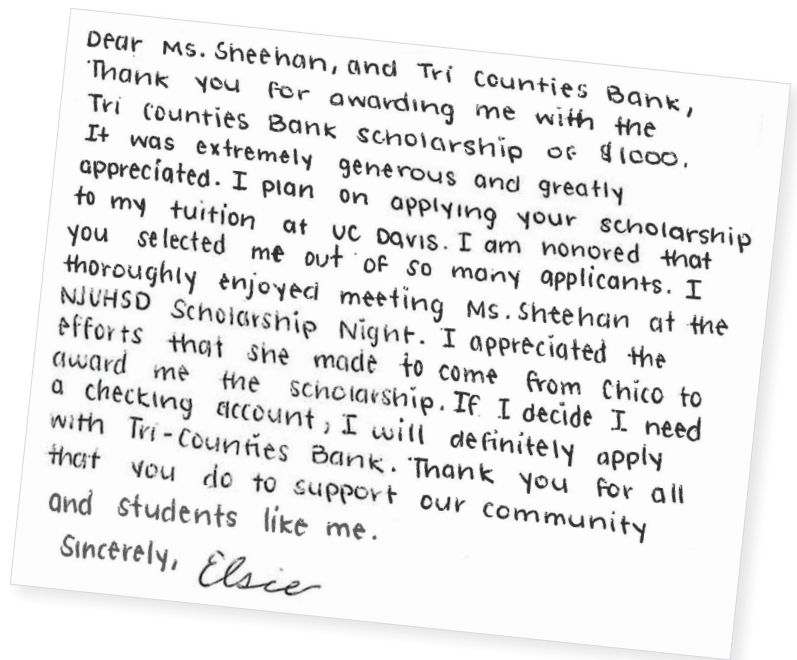 Dear Ms. Sheehan, and Tri Counties Bank,
Thank you for awarding me with the
Tri Counties Bank scholarship of $1000.
It was extremely generous and greatly
appreciated. I plan on applying your scholarship
to my tuition at UC Davis. I am honored that
you selected me out of so many applicants. I
thoroughly enjoyed meeting Ms. Sheehan at the
NJUHSD Scholarship Night. I appreciated the
efforts that she made to come from Chico to
award me the scholarship. If I decide I need
a checking account, I will definitely apply
with Tri-Counties Bank. Thank you for all
that you do to support our community
and students like me.
Sincerely, Elsie